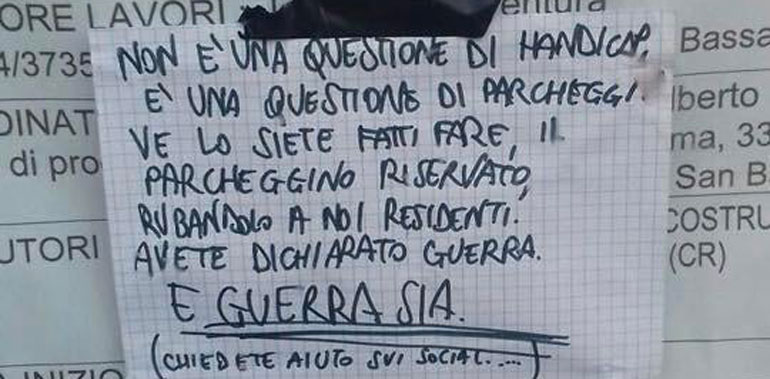 ORE LAVORI
entura
4/3735
Bassa
DINAT
lberto
di pro
ma, 33
San B
UTORI
COSTRU
(CR)
INIZIO
NON E' UNA QUESTIONE DI HANDICAP,
E' UNA QUESTIONE DI PARCHEGGI.
VE LO SIETE FATTI FARE, IL
PARCHEGGINO RISERVATO,
RUBANDOLO A NOI RESIDENTI.
AVETE DICHIARATO GUERRA.
E GUERRA SIA.
(CHIEDETE AIUTO SUI SOCIAL....)